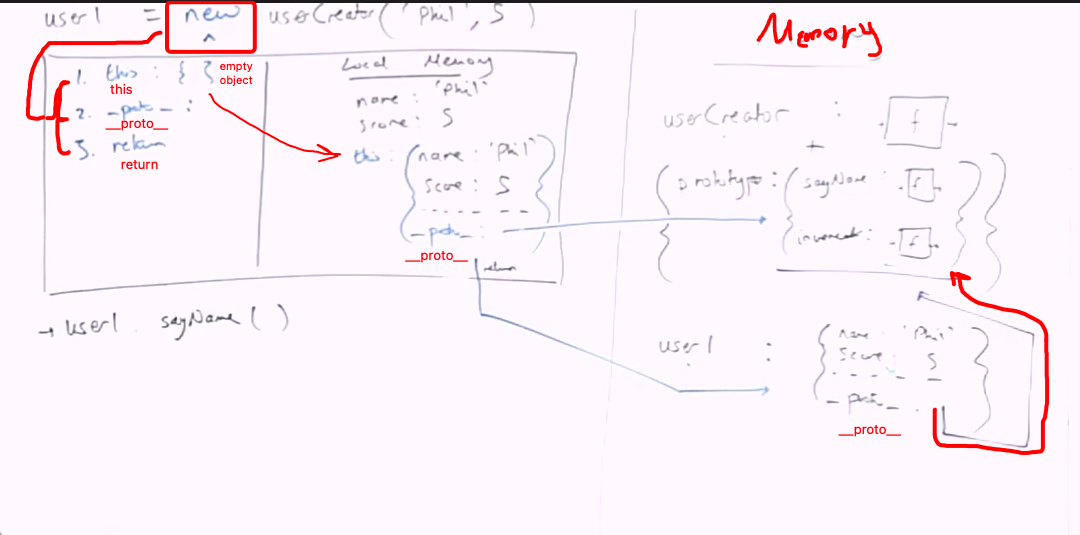 user1 = new userCreator('Phil', 5)
1. this : { }
empty object
this
2. __proto__ :
__proto__
3. return
return
Local Memory
name : 'Phil'
score : 5
this : { name : 'Phil'
score : 5
__proto__ : }
__proto__
return
→ user1 . sayName ( )
Memory
userCreator : f
+
{ prototype : { sayName : f
increment : f } }
user1 : { name : 'Phil'
score : 5
__proto__ : }
__proto__